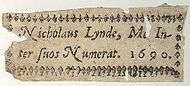 Nicholaus Lynde, Me In-
ter suos Numerat. 1690.